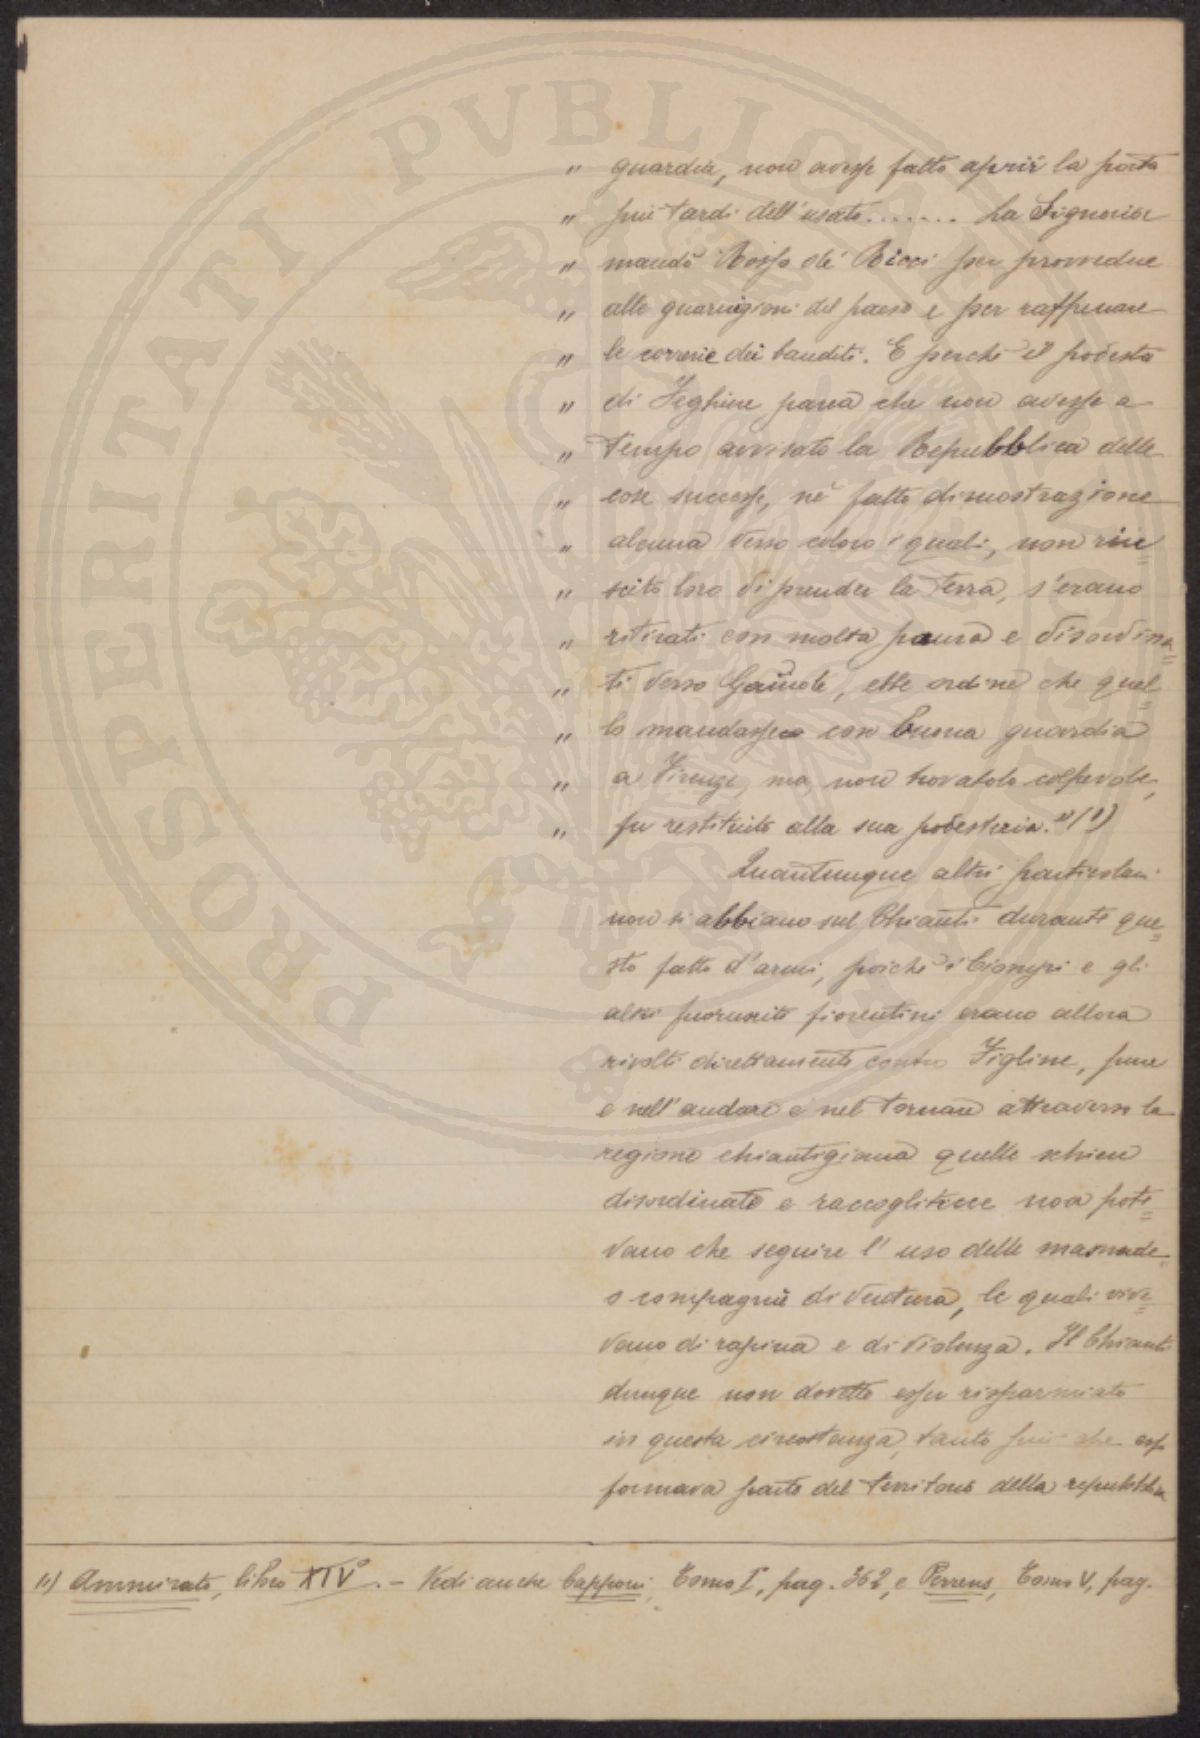 PROSPERITATI PVBLICAE
" guardia, non avesse fatto aprir la porta
" più tardi dell'usato....... La Signoria
" mandò Rosso de' Ricci per provvedere
" alle guarnigioni del paese e per raffrenare
" le correrie dei banditi. E perchè il podestà
" di Feghine parea che non avesse a
" tempo avvisato la Repubblica delle
" cose successe, nè fatto dimostrazione
" alcuna verso coloro i quali, non riu=
" scito loro di prender la terra, s'erano
" ritirati con molta paura e disordina=
" ti verso Gaiuole, ebbe ordine che quel=
" lo mandasse con buona guardia
" a Firenze, ma, non trovatolo colpevole,
" fu restituito alla sua podesteria." (1)
Quantunque altri particolari
non si abbiano sul Chianti durante que=
sto fatto d'armi, poichè i Ciompi e gli
altri fuorusciti fiorentini erano allora
rivolti direttamente contro Figline, pure
e nell'andare e nel tornare attraverso la
regione chiantigiana quelle schiere
disordinate e raccogliticce non pote=
vano che seguire l'uso delle masnade
o compagnie di ventura, le quali vive=
vano di rapina e di violenza. Il Chianti
dunque non dovette esser risparmiato
in questa circostanza, tanto più che esso
formava parte del territorio della repubblica
(1) Ammirato, libro XIV°. - Vedi anche Capponi, Tomo I, pag. 362, e Perrens, Tomo V, pag.